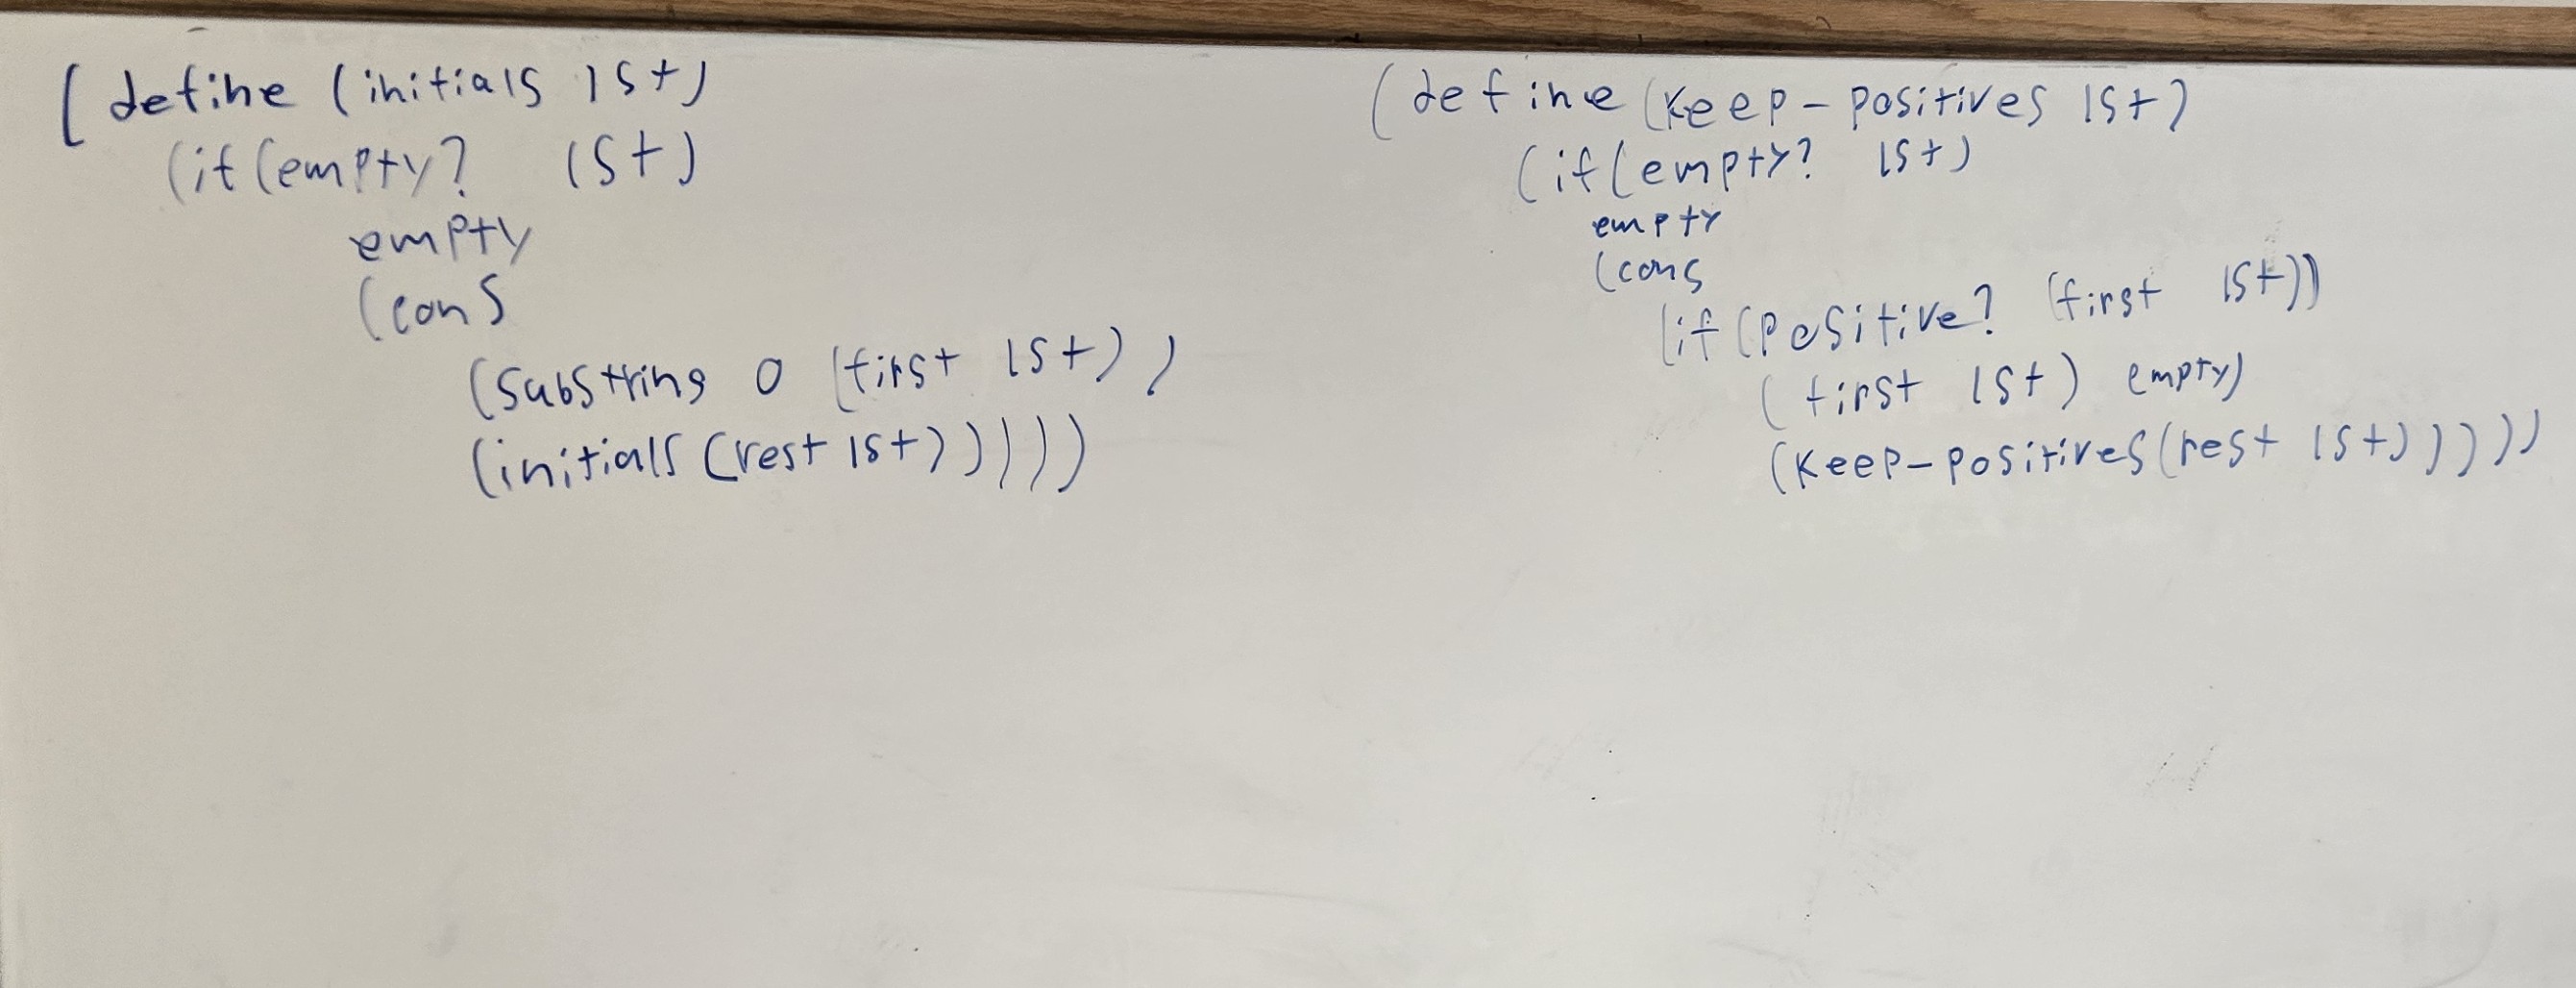 (define (initials lst)
(if (empty? lst)
empty
(cons
(substring 0 (first lst))
(initials (rest lst)))))
(define (keep-positives lst)
(if (empty? lst)
empty
(cons
(if (positive? (first lst))
(first lst) empty)
(keep-positives (rest lst)))))